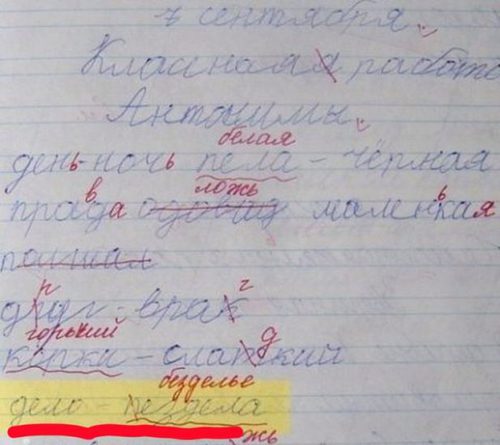 7 сентября.
Классная работа
Антонимы.
белая
день-ночь пела - чёрная
ложь
в ь
прада одовад маленкая
р г
друг - врак
горький д
коржи - слаткий
безделье
дело - пездела
жь